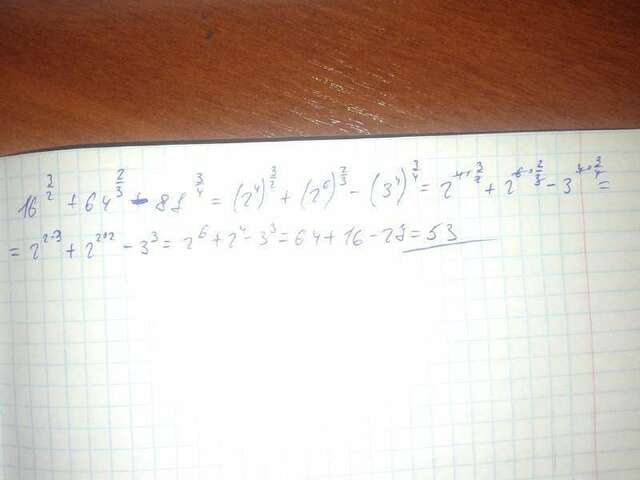 16^{3/2} + 64^{2/3} - 81^{3/4} = (2^4)^{3/2} + (2^6)^{2/3} - (3^4)^{3/4} = 2^{4·3/2} + 2^{6·2/3} - 3^{4·3/4} =
= 2^{2·3} + 2^{2·2} - 3^3 = 2^6 + 2^4 - 3^3 = 64 + 16 - 27 = 53